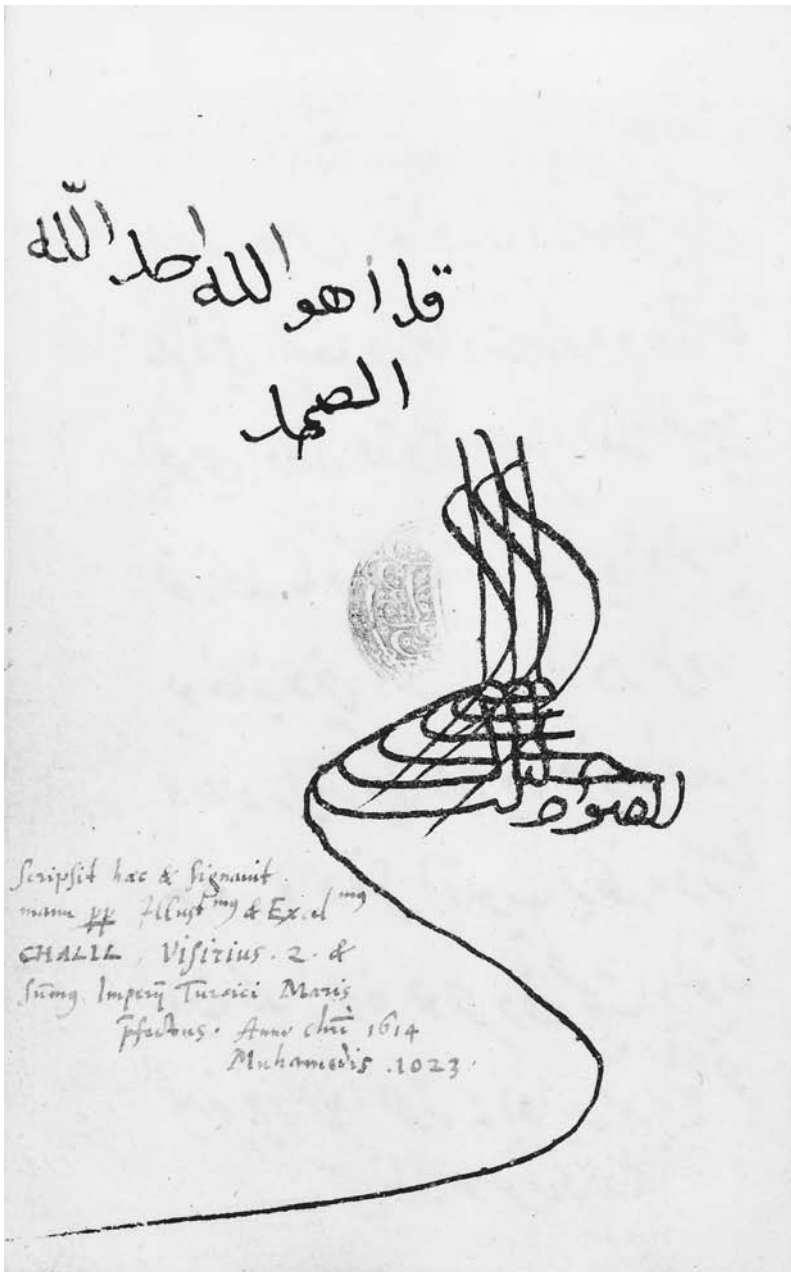 قل هو الله احد الله
الصمد
Scripsit hæc & signauit
manu pp Illust^mus & Excel^mus
CHALIL, Visirius. 2. &
Sum̄us Imperij Turcici Maris
p̄fectus. Anno chri 1614
Muhamedis .1023.